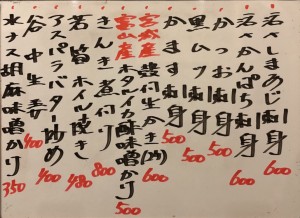 活きしまあじ刺身 600
活きかんぱち刺身 600
かつお刺身 500
黒ムツ刺身 500
かます刺身 500
宮城産 殻付生かき(2ケ) 600
富山産 ホタルイカ酢味噌かけ 500
きんき煮付 800
若皆ホイル焼き 480
アスパラバター炒め 400
谷中生姜 400
水ナス胡麻味噌かけ 350